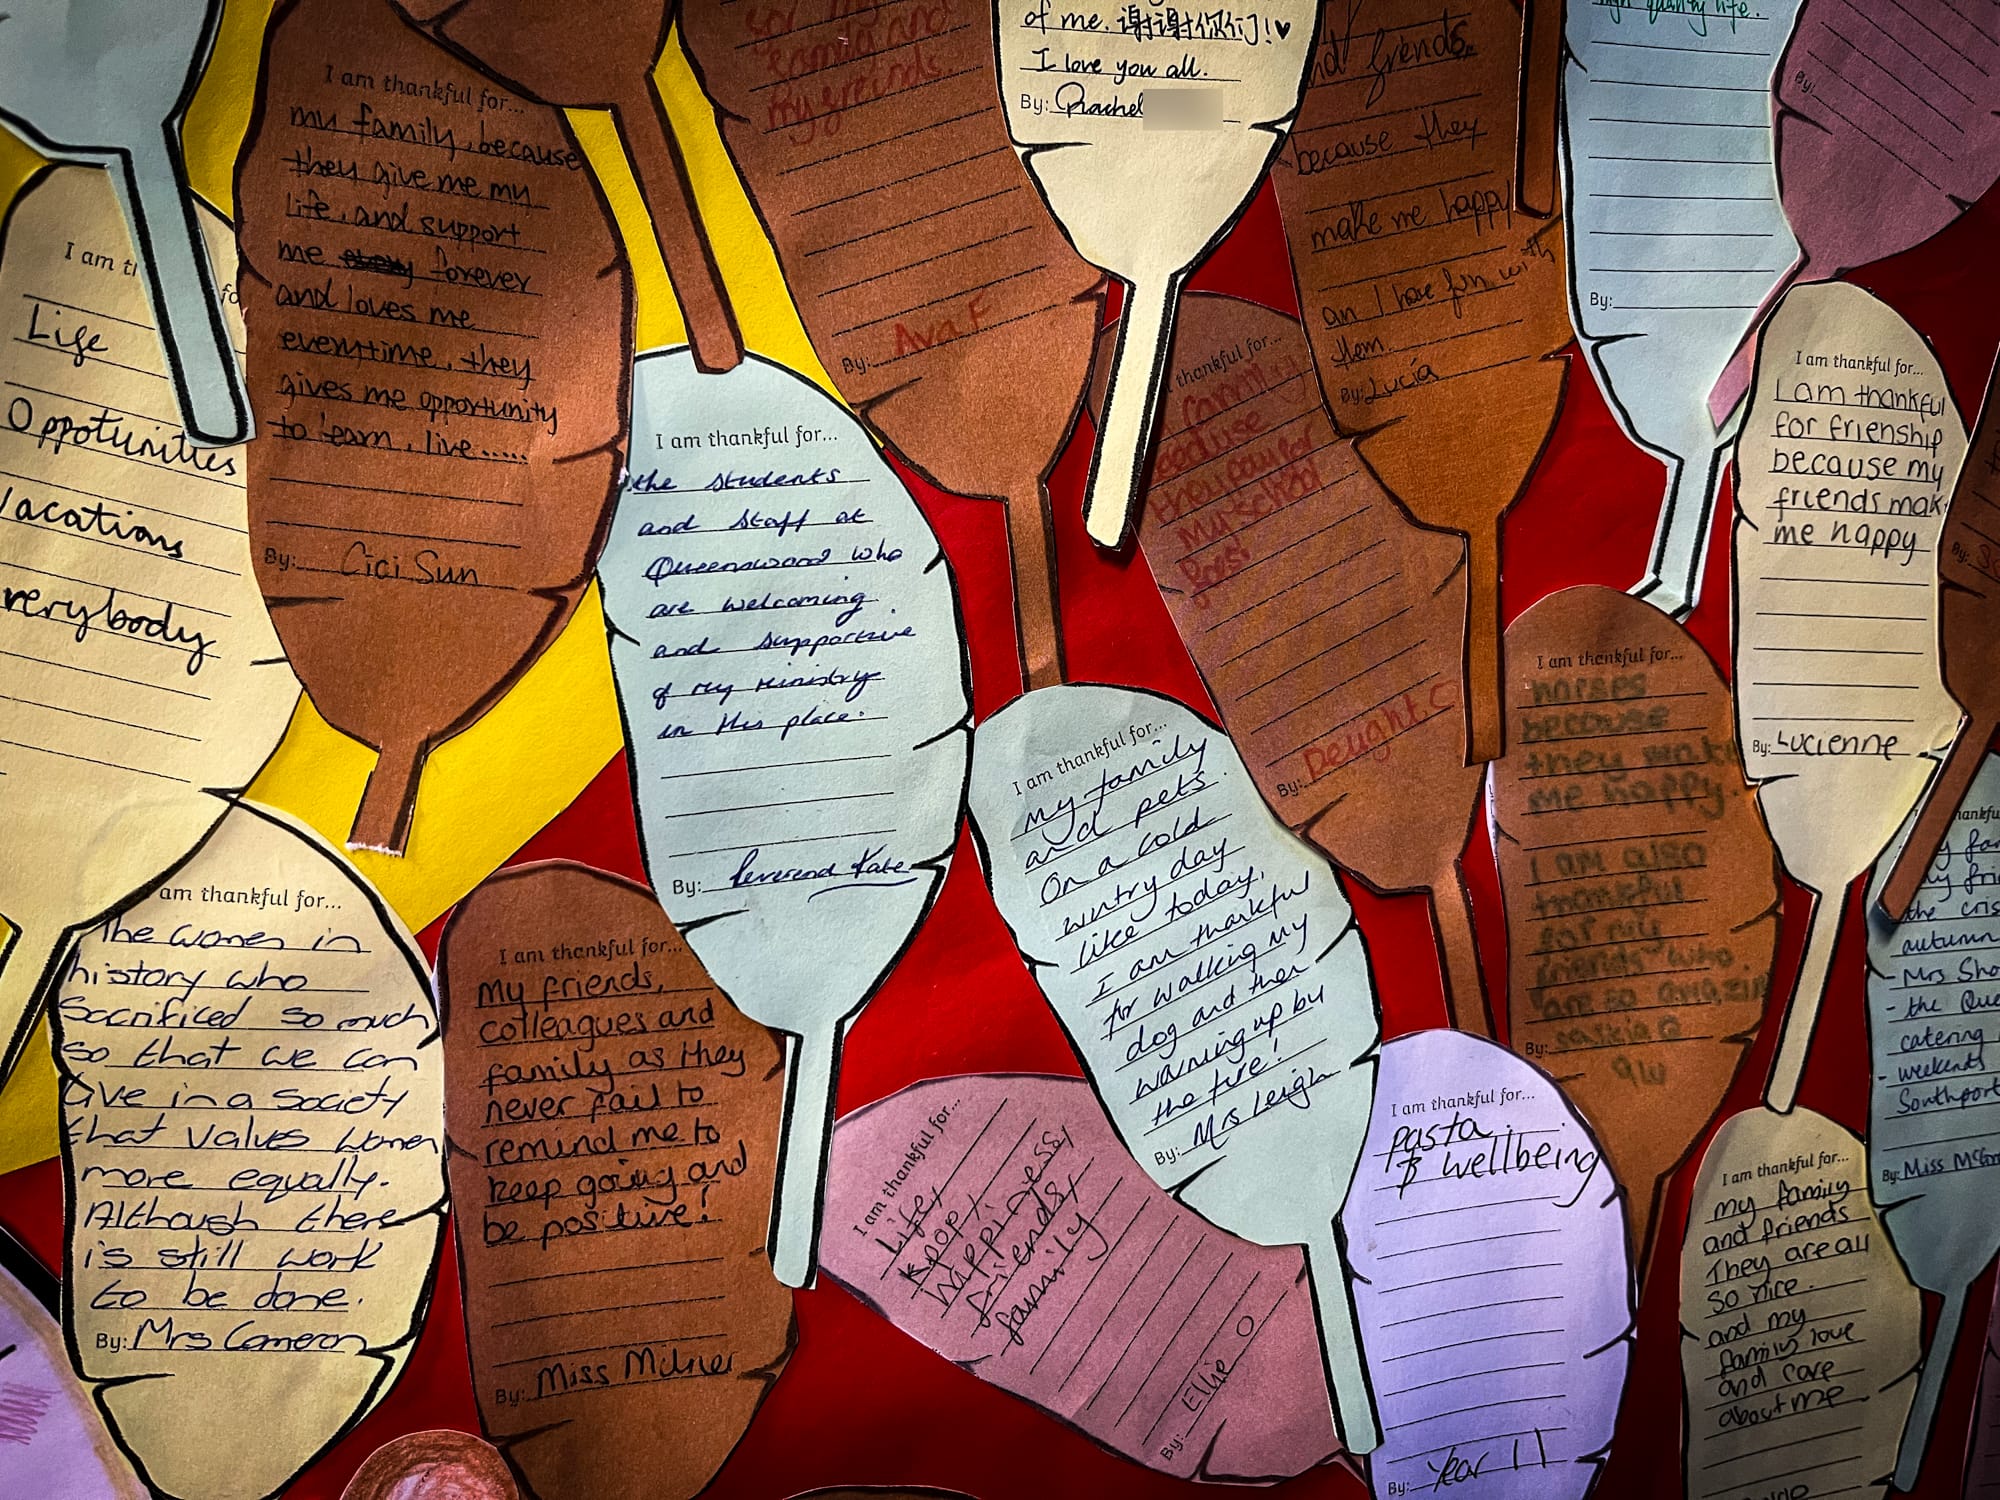 I am
Life
Oppotunities
verybody
I am thankful for...
my family, because
they give me my
Life, and support
me forever
and loves me
everytime, they
gives me opportunity
to learn, live.....
By: Cici Sun
family and
my friends.
By: Ava F
of me. 谢谢你们!♥
I love you all.
By: Rachel
friends
because they
make me happy
an I have fun with
them.
By: Lucía
high quality life.
By:
By:
I am thankful for...
the students
and staff at
Queenswood who
are welcoming
and supportive
of my ministry
in this place.
By: Reverend Kate
thankful for...
family
they pay for
My school
By: Deught.C
I am thankful for...
I am thankful
for frienship
because my
friends mak
me happy
By: Lucienne
I am thankful for...
horses
because
they make
me happy.
I am also
thankful
for my
friends who
are so amazing
By: saskia G
I am thankful for...
my family
and pets.
On a cold
wintry day
like today,
I am thankful
for walking my
dog and then
warming up by
the fire!
By: Mrs Leigh
am thankful for...
The women in
history who
Sacrificed so much
so that we can
live in a Society
that values women
more equally.
Although there
is still work
to be done.
By: Mrs Cameron
I am thankful for...
My friends,
colleagues and
family as they
never fail to
remind me to
keep going and
be positive!
By: Miss Milner
I am thankful for...
Life,
Kpop,
Happiness,
friends,
family
By: Ellie O
I am thankful for...
pasta
& wellbeing
By: Year 11
I am thankful for...
my family
and friends
They are all
so nice.
and my
family love
and care
about me
the
autumn
- Mrs
- the
catering
- weekends
Southport
By: Miss